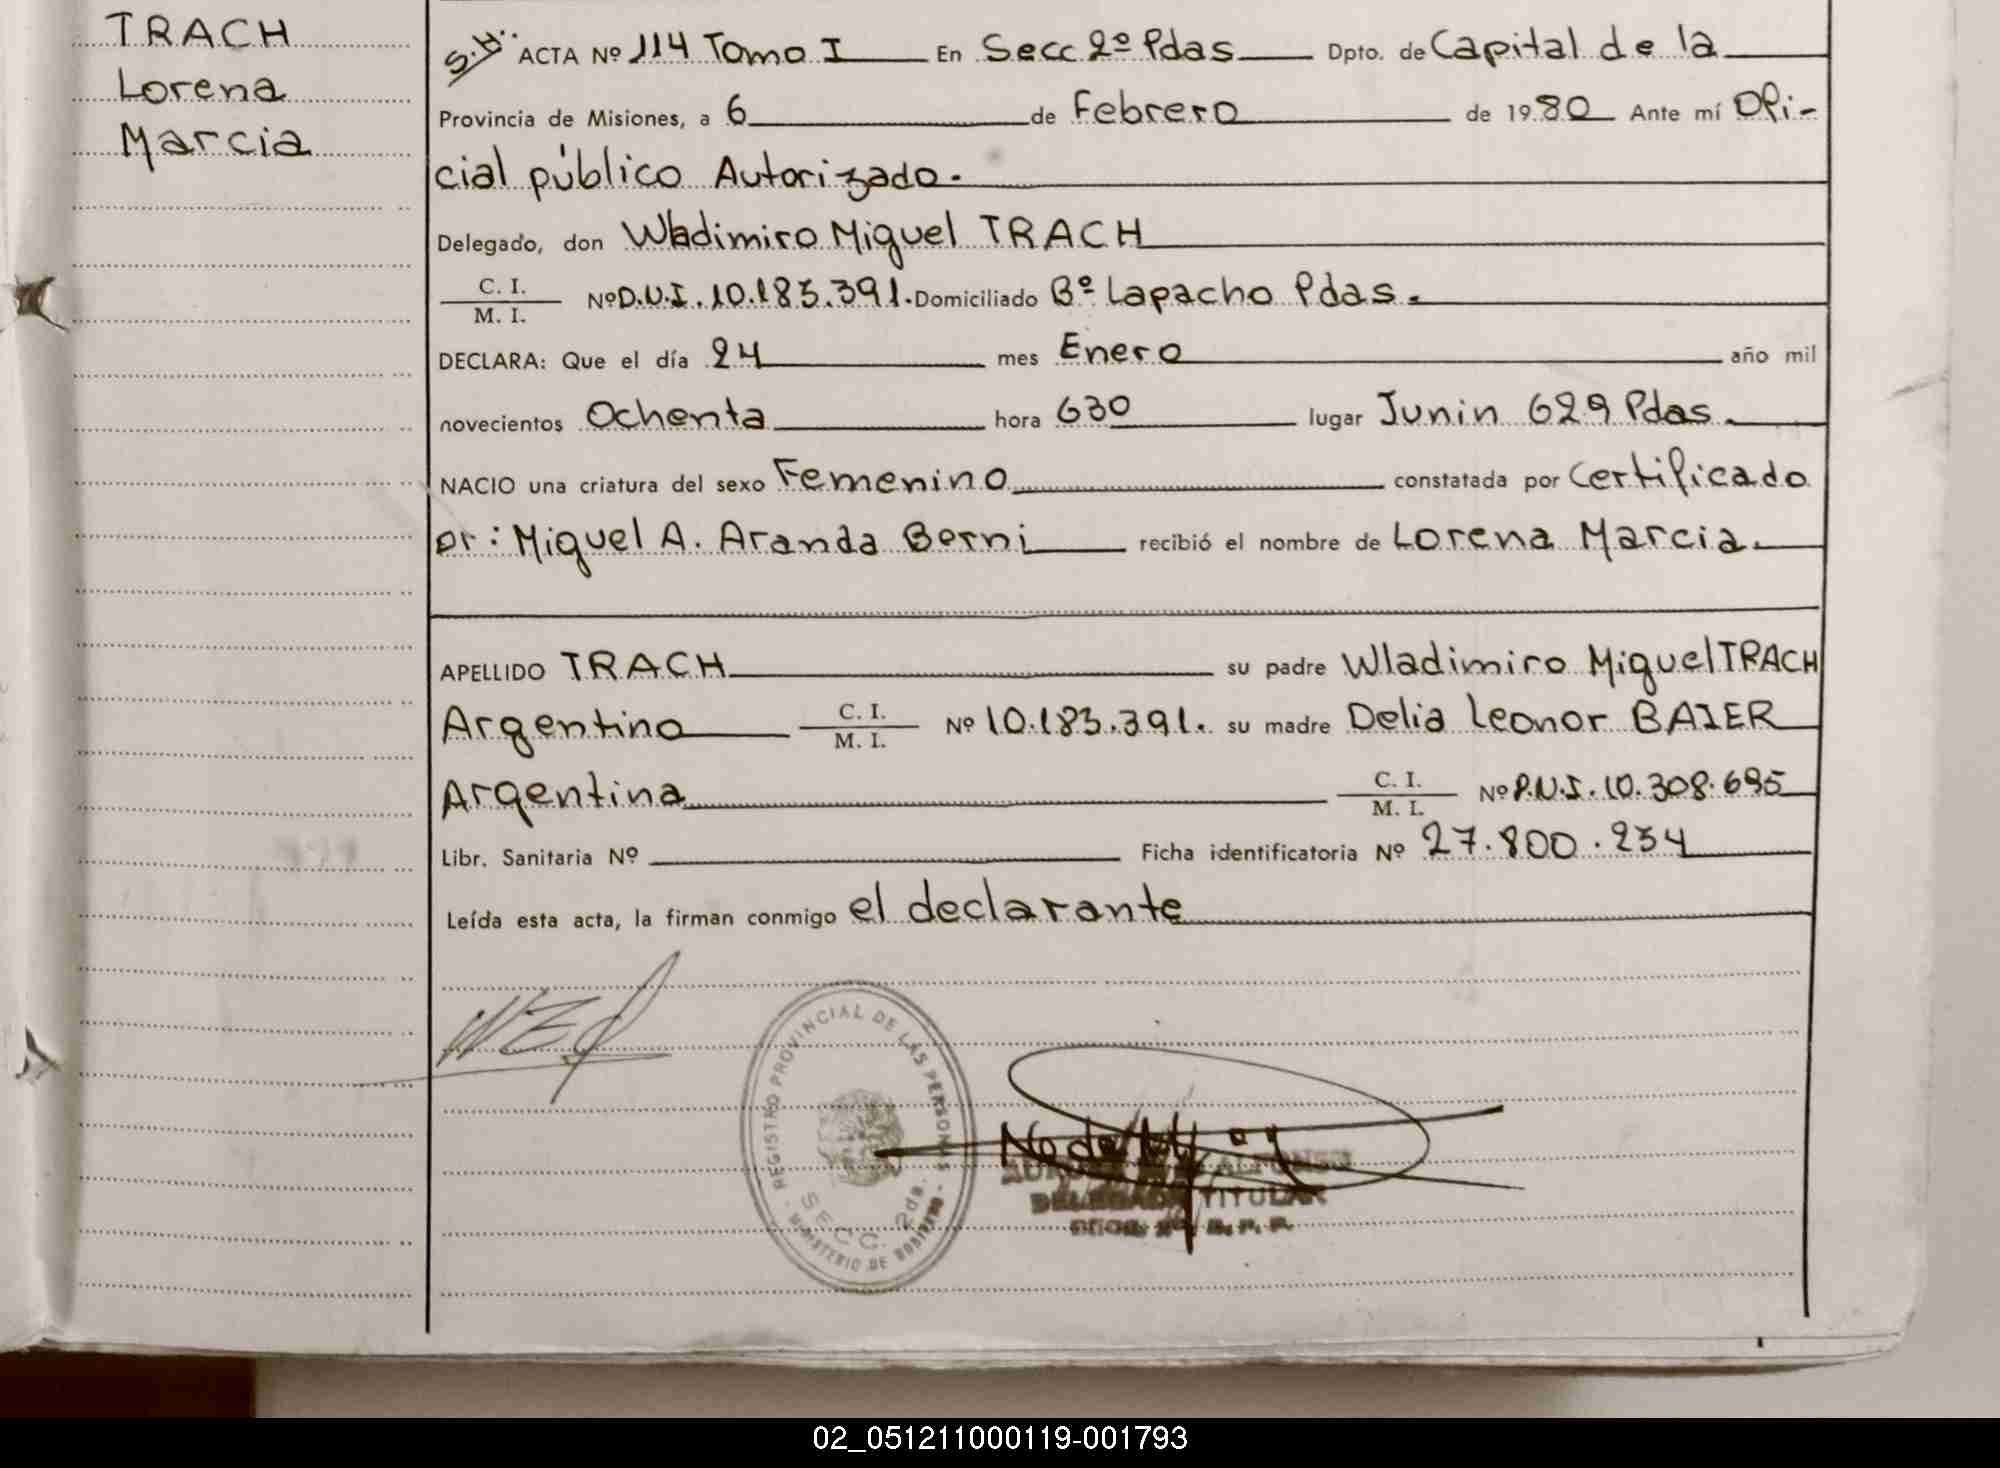 TRACH
Lorena
Marcia
S.H. ACTA Nº 114 Tomo I En Secc 2º Pdas Dpto. de Capital de la
Provincia de Misiones, a 6 de Febrero de 1980 Ante mí Ofi-
cial público Autorizado.
Delegado, don Wladimiro Miguel TRACH
C. I.
M. I. Nº D.N.I. 10.183.391. Domiciliado Bº Lapacho Pdas.
DECLARA: Que el día 24 mes Enero año mil
novecientos Ochenta hora 630 lugar Junin 629 Pdas.
NACIO una criatura del sexo Femenino constatada por Certificado
Dr: Miguel A. Aranda Berni recibió el nombre de Lorena Marcia.
APELLIDO TRACH su padre Wladimiro Miguel TRACH
Argentino C. I.
M. I. Nº 10.183.391. su madre Delia Leonor BAIER
Argentina C. I.
M. I. Nº D.N.I. 10.308.695
Libr. Sanitaria Nº Ficha identificatoria Nº 27.800.234
Leída esta acta, la firman conmigo el declarante
REGISTRO PROVINCIAL DE LAS PERSONAS
SECC. 2da.
MINISTERIO DE GOBIERNO
ALFONSO
DELEGADO TITULAR
02_051211000119-001793